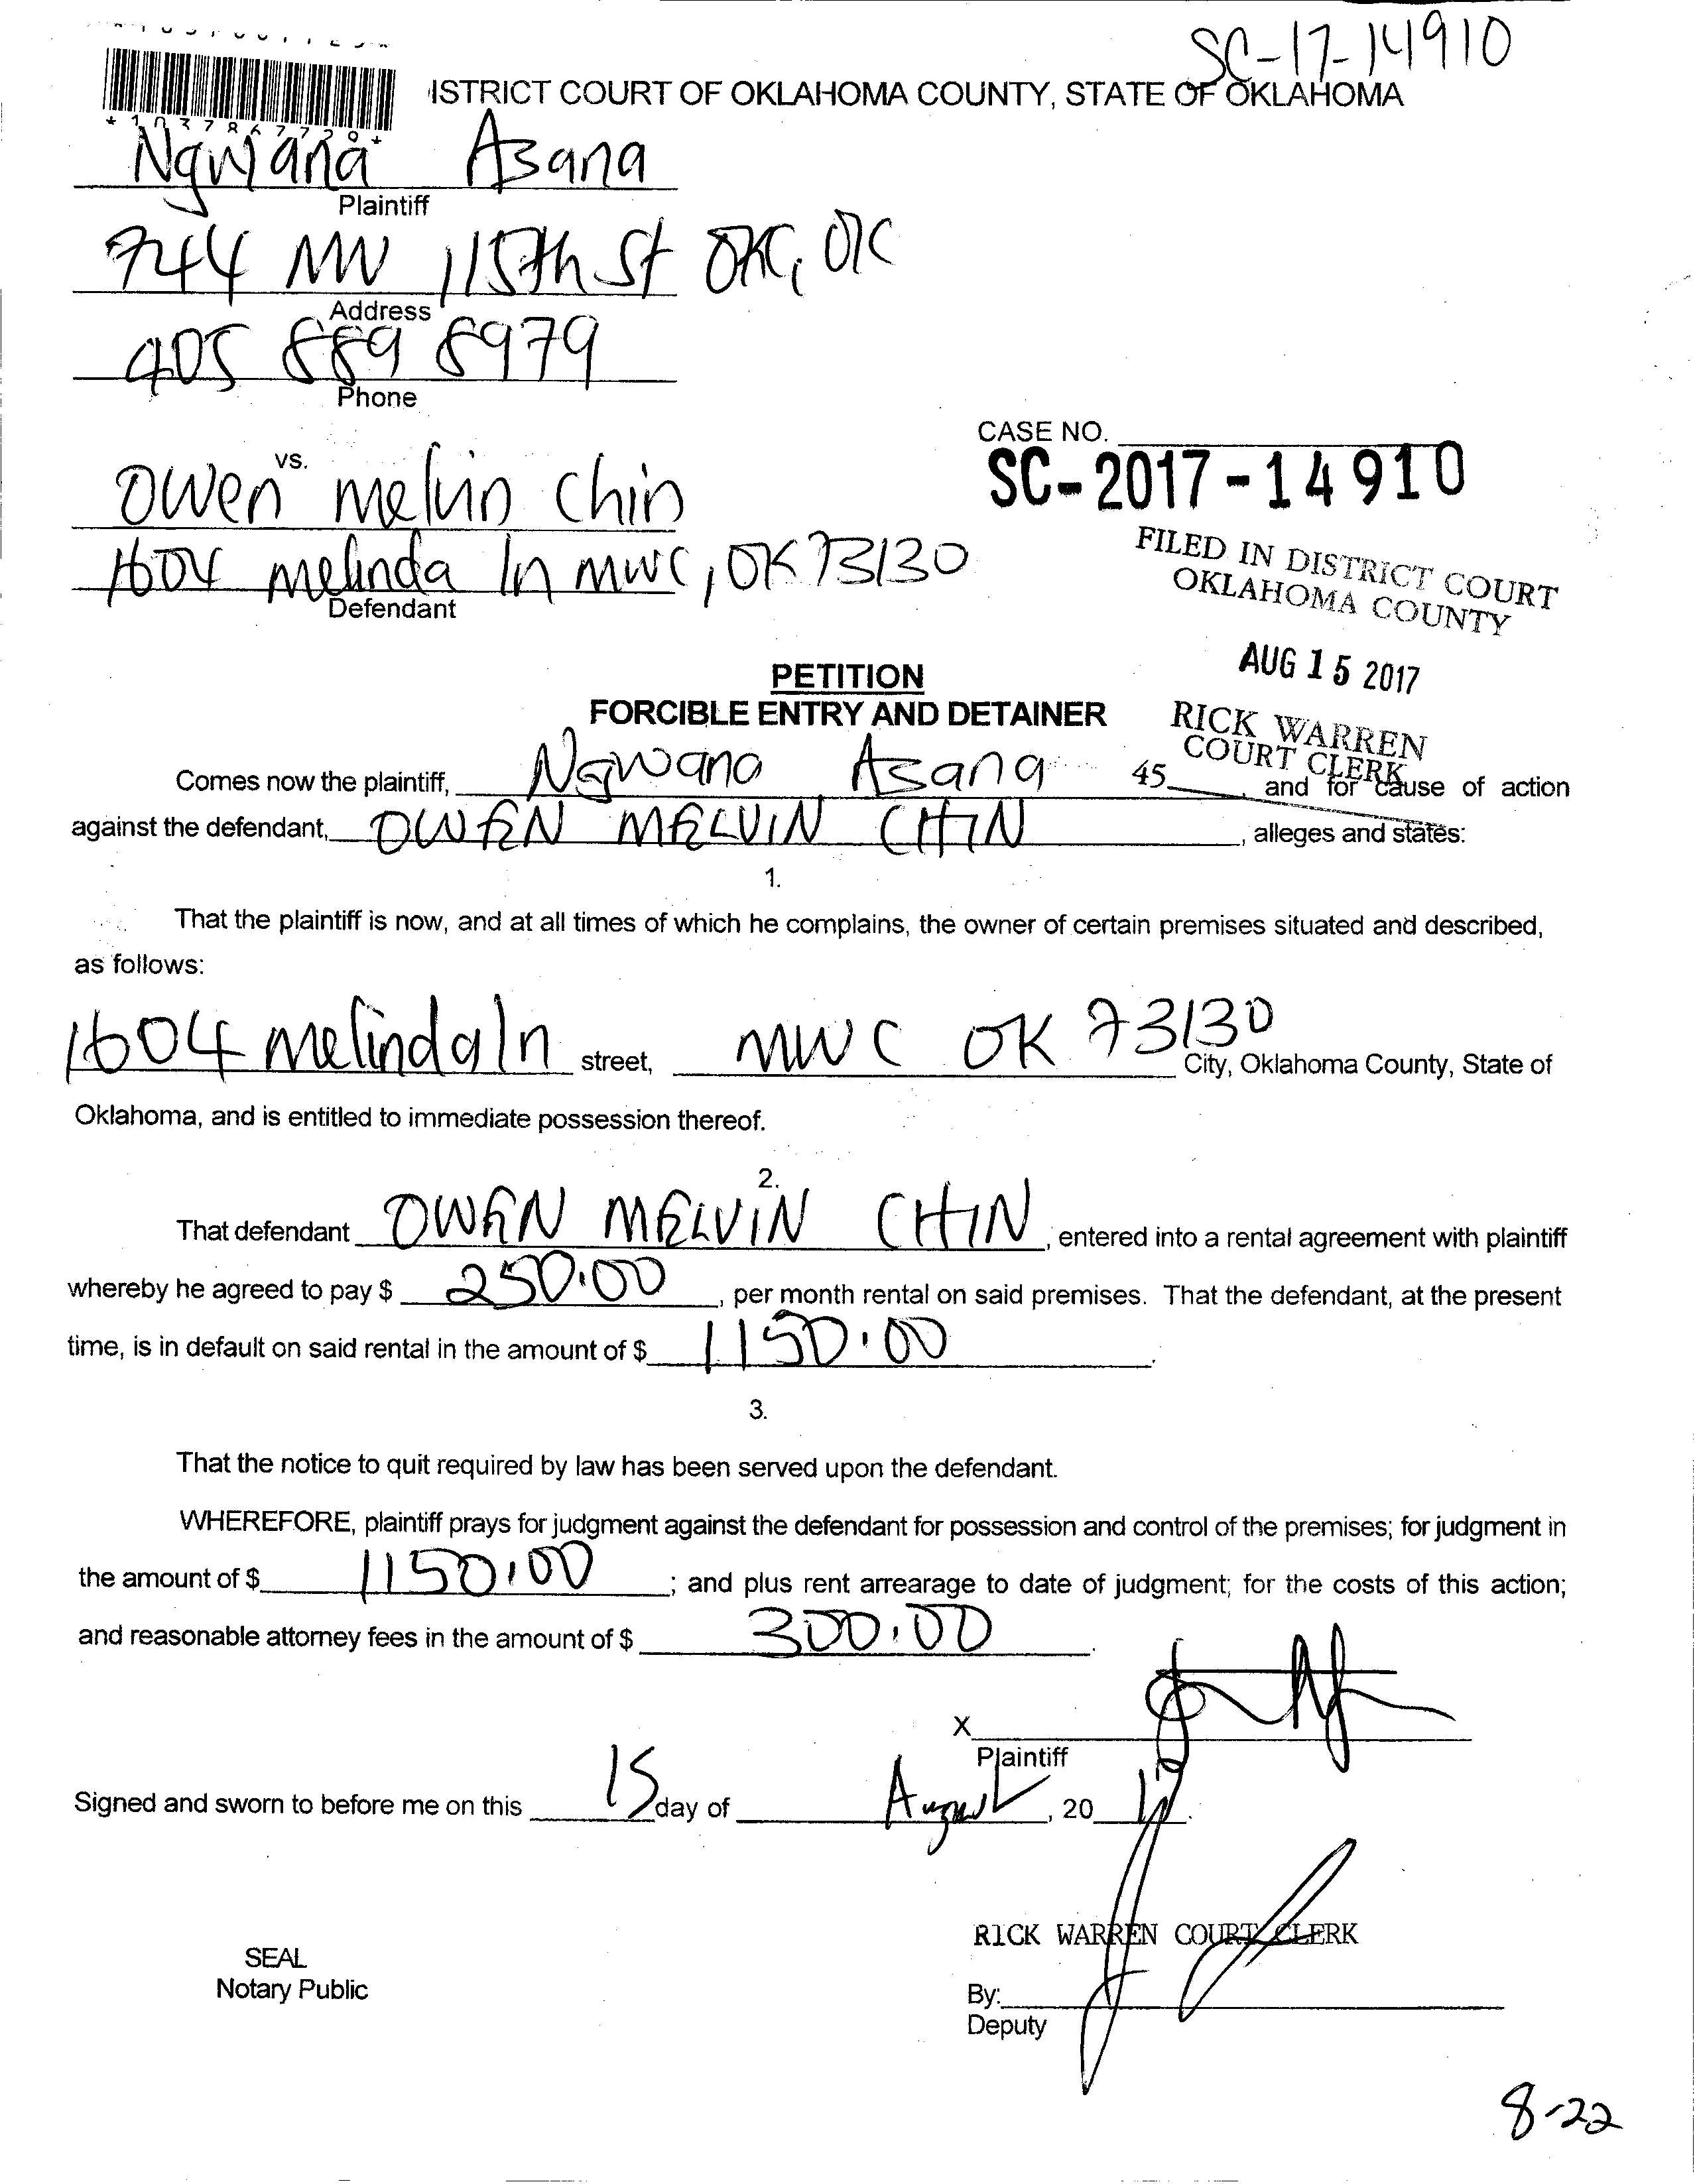 SC-17-14910
ISTRICT COURT OF OKLAHOMA COUNTY, STATE OF OKLAHOMA
Ngwana Asana
Plaintiff
744 NW 115th St OKC, OK
Address
405 889 8979
Phone
CASE NO.
SC-2017-14910
vs.
Owen melvin chin
1604 melinda ln mwc, OK 73130
Defendant
FILED IN DISTRICT COURT
OKLAHOMA COUNTY
AUG 15 2017
RICK WARREN
COURT CLERK
45
PETITION
FORCIBLE ENTRY AND DETAINER
Comes now the plaintiff, Ngwana Asana, and for cause of action
against the defendant, OWEN MELVIN CHIN, alleges and states:
1.
That the plaintiff is now, and at all times of which he complains, the owner of certain premises situated and described,
as follows:
1604 melinda ln street, MWC OK 73130 City, Oklahoma County, State of
Oklahoma, and is entitled to immediate possession thereof.
2.
That defendant OWEN MELVIN CHIN, entered into a rental agreement with plaintiff
whereby he agreed to pay $ 250.00, per month rental on said premises. That the defendant, at the present
time, is in default on said rental in the amount of $ 1150.00.
3.
That the notice to quit required by law has been served upon the defendant.
WHEREFORE, plaintiff prays for judgment against the defendant for possession and control of the premises; for judgment in
the amount of $ 1150.00; and plus rent arrearage to date of judgment; for the costs of this action;
and reasonable attorney fees in the amount of $ 300.00.
X
Plaintiff
Signed and sworn to before me on this 15 day of August, 20 17.
RICK WARREN COURT CLERK
SEAL
Notary Public
By:
Deputy
8-22